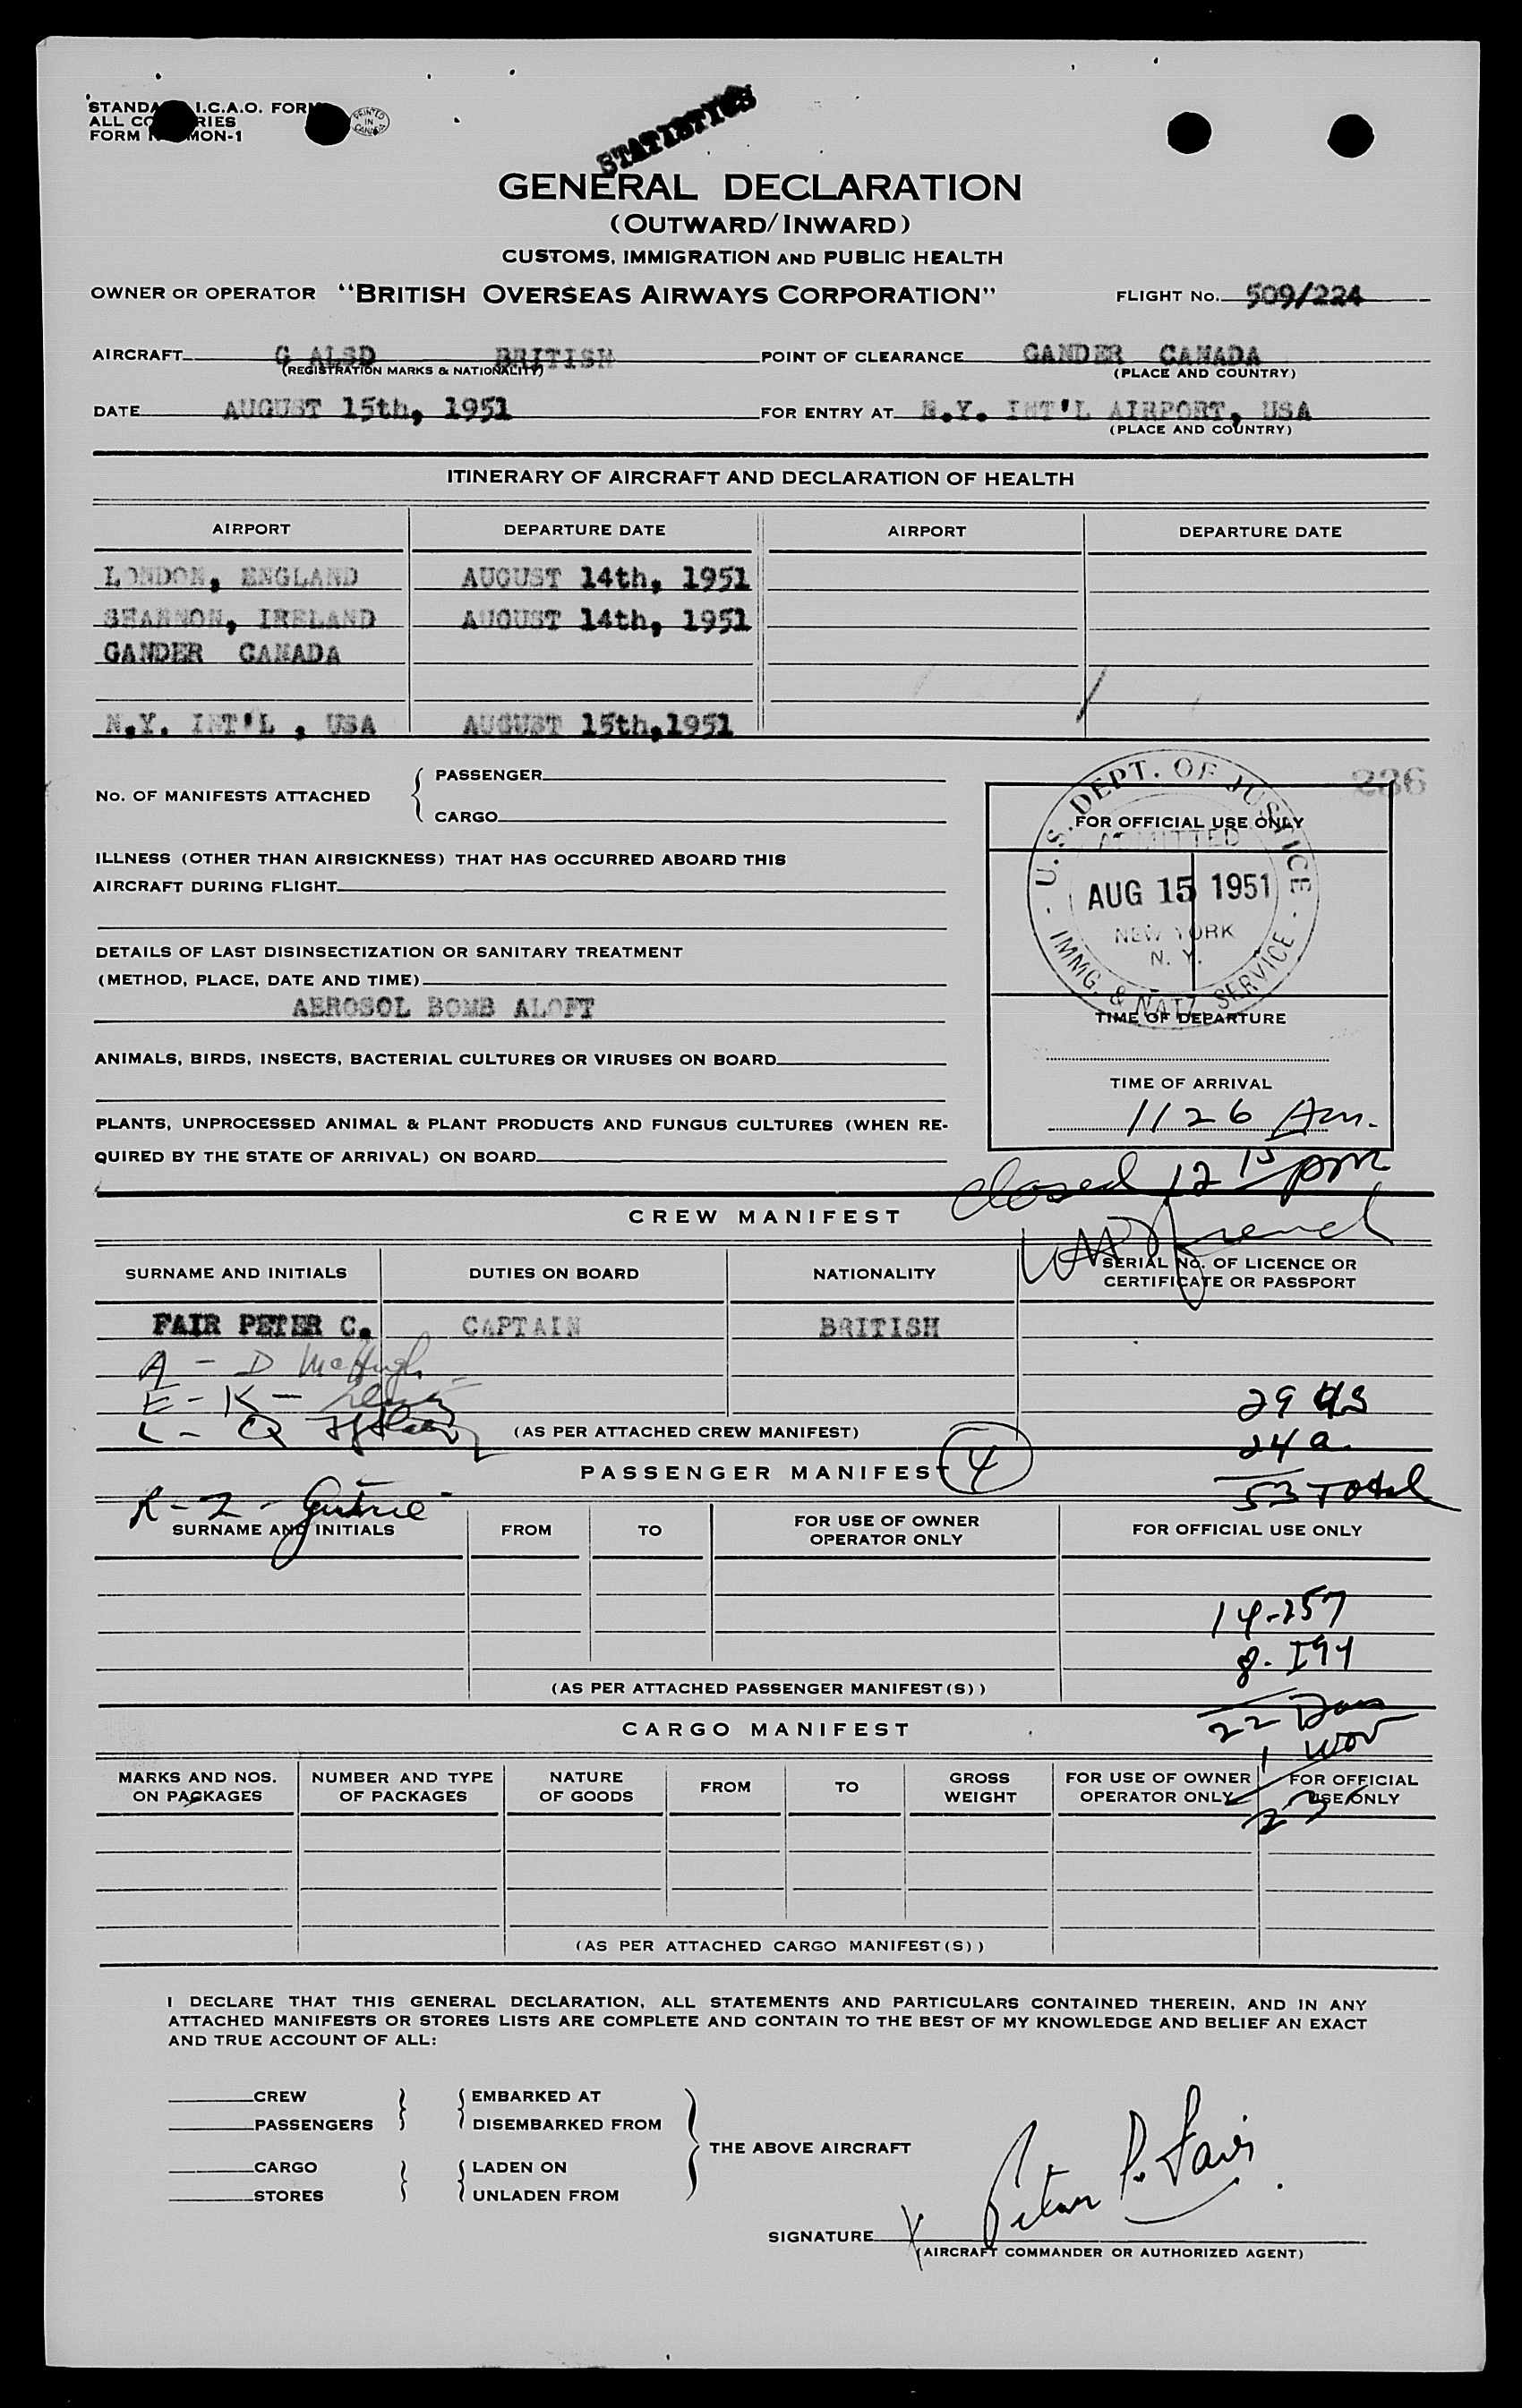 STANDA I.C.A.O. FOR
ALL CO RIES
FORM MON-1
PRINTED IN CANADA
STATISTICS
GENERAL DECLARATION
(OUTWARD/INWARD)
CUSTOMS, IMMIGRATION AND PUBLIC HEALTH
OWNER OR OPERATOR "BRITISH OVERSEAS AIRWAYS CORPORATION" FLIGHT No. 509/224
AIRCRAFT G ALSD BRITISH POINT OF CLEARANCE GANDER CANADA
(REGISTRATION MARKS & NATIONALITY) (PLACE AND COUNTRY)
DATE AUGUST 15th, 1951 FOR ENTRY AT N.Y. INT'L AIRPORT, USA
(PLACE AND COUNTRY)
ITINERARY OF AIRCRAFT AND DECLARATION OF HEALTH
AIRPORT DEPARTURE DATE AIRPORT DEPARTURE DATE
LONDON, ENGLAND AUGUST 14th, 1951
SHANNON, IRELAND AUGUST 14th, 1951
GANDER CANADA
N.Y. INT'L , USA AUGUST 15th,1951
No. OF MANIFESTS ATTACHED
PASSENGER
CARGO
236
FOR OFFICIAL USE ONLY
U.S. DEPT. OF JUSTICE
ADMITTED
AUG 15 1951
NEW YORK
N. Y.
IMMG. & NATZ. SERVICE
ILLNESS (OTHER THAN AIRSICKNESS) THAT HAS OCCURRED ABOARD THIS
AIRCRAFT DURING FLIGHT
DETAILS OF LAST DISINSECTIZATION OR SANITARY TREATMENT
(METHOD, PLACE, DATE AND TIME)
AEROSOL BOMB ALOFT
TIME OF DEPARTURE
ANIMALS, BIRDS, INSECTS, BACTERIAL CULTURES OR VIRUSES ON BOARD
TIME OF ARRIVAL
1126 Am.
PLANTS, UNPROCESSED ANIMAL & PLANT PRODUCTS AND FUNGUS CULTURES (WHEN RE-
QUIRED BY THE STATE OF ARRIVAL) ON BOARD
closed 12 15 pm
CREW MANIFEST
French
SURNAME AND INITIALS DUTIES ON BOARD NATIONALITY SERIAL No. OF LICENCE OR
CERTIFICATE OR PASSPORT
FAIR PETER C. CAPTAIN BRITISH
A - D McHugh
E - K -
29 US
L - Q
(AS PER ATTACHED CREW MANIFEST)
24 a
PASSENGER MANIFEST 4
53 Total
R - Z - Guthrie
SURNAME AND INITIALS FROM TO FOR USE OF OWNER
OPERATOR ONLY FOR OFFICIAL USE ONLY
14-257
8-I94
(AS PER ATTACHED PASSENGER MANIFEST(S))
22
CARGO MANIFEST
1 wov
MARKS AND NOS.
ON PACKAGES NUMBER AND TYPE
OF PACKAGES NATURE
OF GOODS FROM TO GROSS
WEIGHT FOR USE OF OWNER
OPERATOR ONLY FOR OFFICIAL
USE ONLY
23
(AS PER ATTACHED CARGO MANIFEST(S))
I DECLARE THAT THIS GENERAL DECLARATION, ALL STATEMENTS AND PARTICULARS CONTAINED THEREIN, AND IN ANY
ATTACHED MANIFESTS OR STORES LISTS ARE COMPLETE AND CONTAIN TO THE BEST OF MY KNOWLEDGE AND BELIEF AN EXACT
AND TRUE ACCOUNT OF ALL:
CREW EMBARKED AT
PASSENGERS DISEMBARKED FROM
THE ABOVE AIRCRAFT
CARGO LADEN ON
STORES UNLADEN FROM
SIGNATURE X Peter C. Fair
(AIRCRAFT COMMANDER OR AUTHORIZED AGENT)